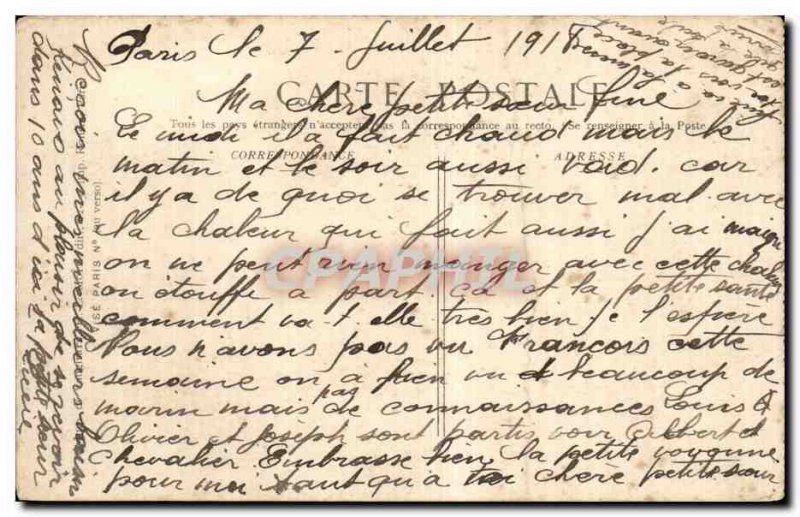 Paris le 7 Juillet 1918
CARTE POSTALE
Ma chère petite sœur fine
Tous les pays étrangers n'acceptent pas la correspondance au recto. (Se renseigner à la Poste
Le midi il a fait chaud mais le
CORRESPONDANCE
ADRESSE
matin et le soir aussi car
il y a de quoi se trouver mal avec
la chaleur qui fait aussi j'ai maigri
on ne peut rien manger avec cette chaleur
on étouffe a part ça et la petite santé
comment va t'elle très bien je l'espère
Nous n'avons pas vu François cette
semaine on a bien vu beaucoup de
marin mais pas de connaissances Louis
Olivier et Joseph sont partis voir Albert
Chevalier Embrasse bien la petite
pour moi quant a toi chère petite sœur
Reçois mes meilleurs
au plaisir de se revoir
dans 10 ans d'ici ta petite sœur
PARIS N° (au verso)
CPAPHIL